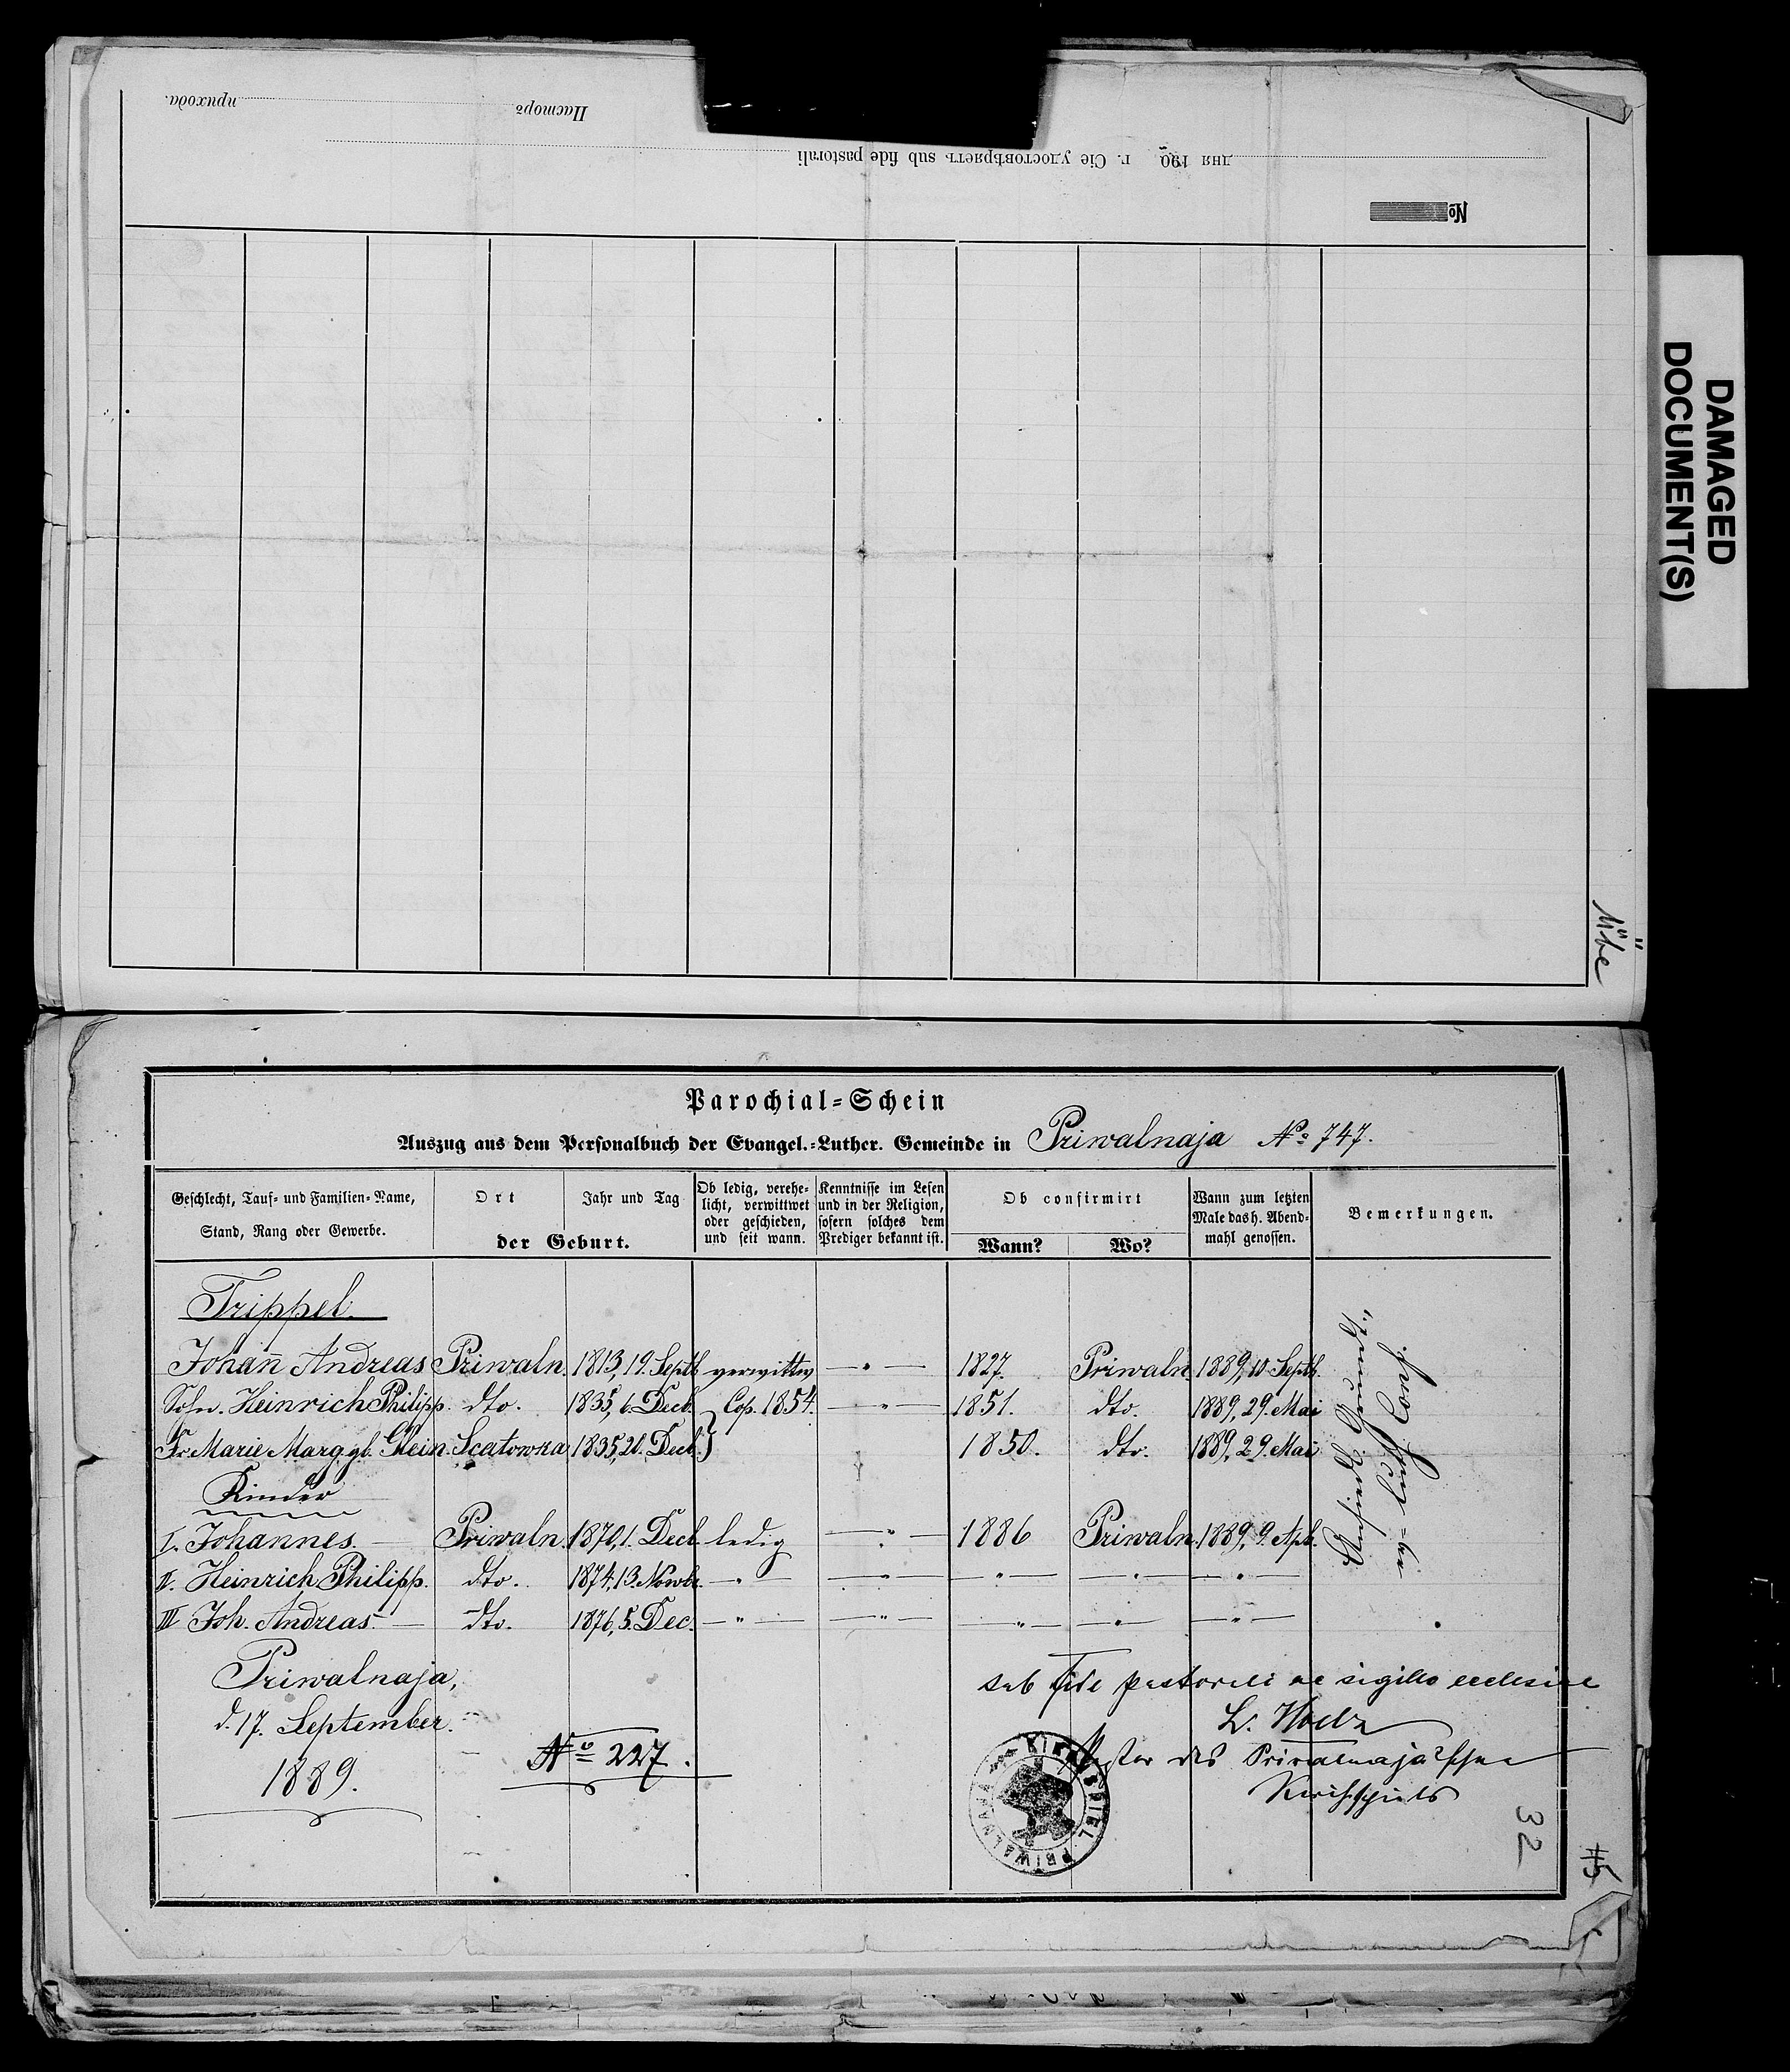 прихода.
Пасторъ
дня 190 г. Сіе удостовѣряетъ sub fide pastorali
№
DAMAGED
DOCUMENT(S)
Parochial-Schein
Auszug aus dem Personalbuch der Evangel.-Luther. Gemeinde in Priwalnaja No 747.
Geschlecht, Tauf- und Familien-Name, Stand, Rang oder Gewerbe.
Ort
Jahr und Tag
der Geburt.
Ob ledig, verehe-
licht, verwittwet
oder geschieden,
und seit wann.
Kenntnisse im Lesen
und in der Religion,
sofern solches dem
Prediger bekannt ist.
Ob confirmirt
Wann? Wo?
Wann zum letzten
Male das h. Abend-
mahl genossen.
Bemerkungen.
Trippel.
Johan̄ Andreas Priwaln. 1813, 19. Septb verwittw — " — 1827. Priwaln. 1889, 10 Septb.
Sohn. Heinrich Philipp. dto. 1835, 6 Decb. } Cop. 1854. — " — 1851. dto. 1889, 29. Mai
Fr. Marie Marg. gb. Glein Scatowka 1835, 20. Decb. } 1850. dto. 1889, 29. Mai
Kinder
I. Johannes. — Priwaln. 1870, 1. Decb. ledig — " — 1886 Priwaln. 1889, 9. Apl.
II. Heinrich Philipp. dto. 1874, 13. Nowbr. — " — — " — — " — — " — — " —
III Joh. Andreas. — dto. 1876, 5. Dec. — " — — " — — " — — " — — " —
Priwalnaja,
d. 17. September.
1889.
No 227.
sub fide pastorali ac sigillo ecclesiae
Pastor des Priwalnaja'schen
Kirchspiels
KIRCHSPIEL PRIWALNAJA
32
#5